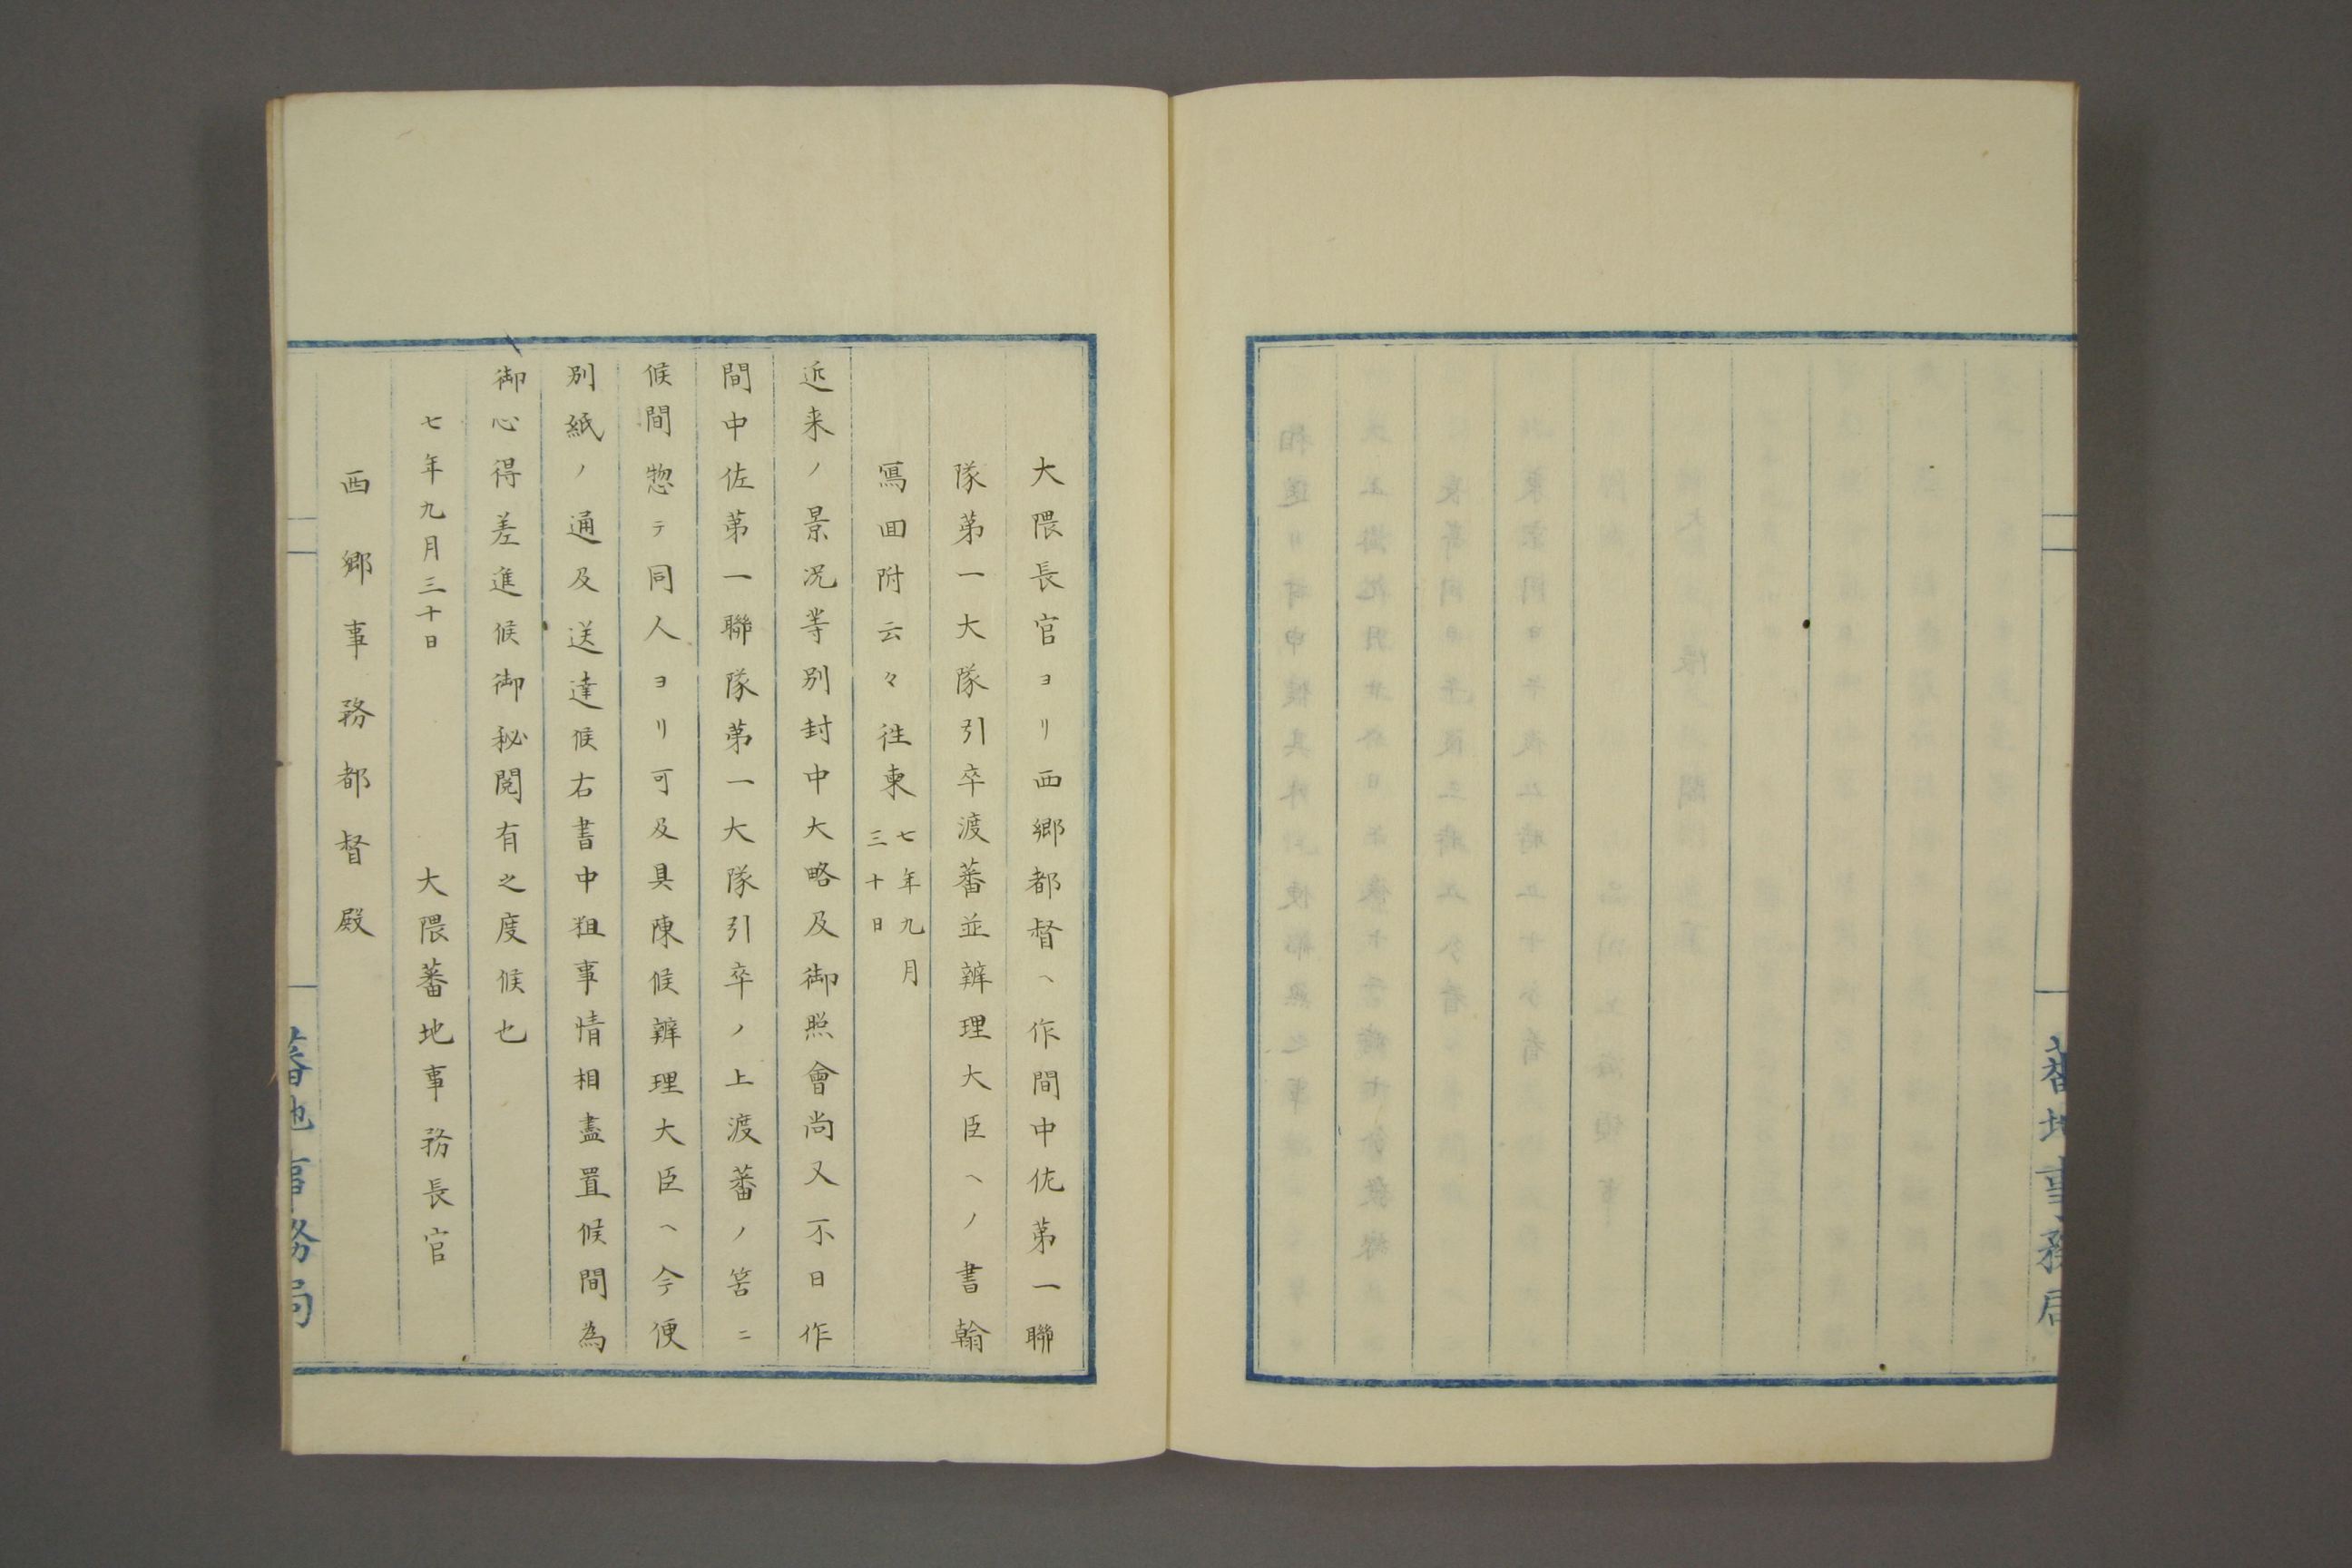 蕃地事務局
大隈長官ヨリ西郷都督ヘ作間中佐第一聯
隊第一大隊引卒渡蕃並辨理大臣ヘノ書翰
寫回附云々往柬 七年九月
三十日
近来ノ景況等別封中大略及御照會尚又不日作
間中佐第一聯隊第一大隊引卒ノ上渡蕃ノ筈ニ
候間惣テ同人ヨリ可及具陳候辨理大臣ヘ今便
別紙ノ通及送達候右書中粗事情相盡置候間為
御心得差進候御秘閲有之度候也
七年九月三十日 大隈蕃地事務長官
西郷事務都督殿
蕃地事務局